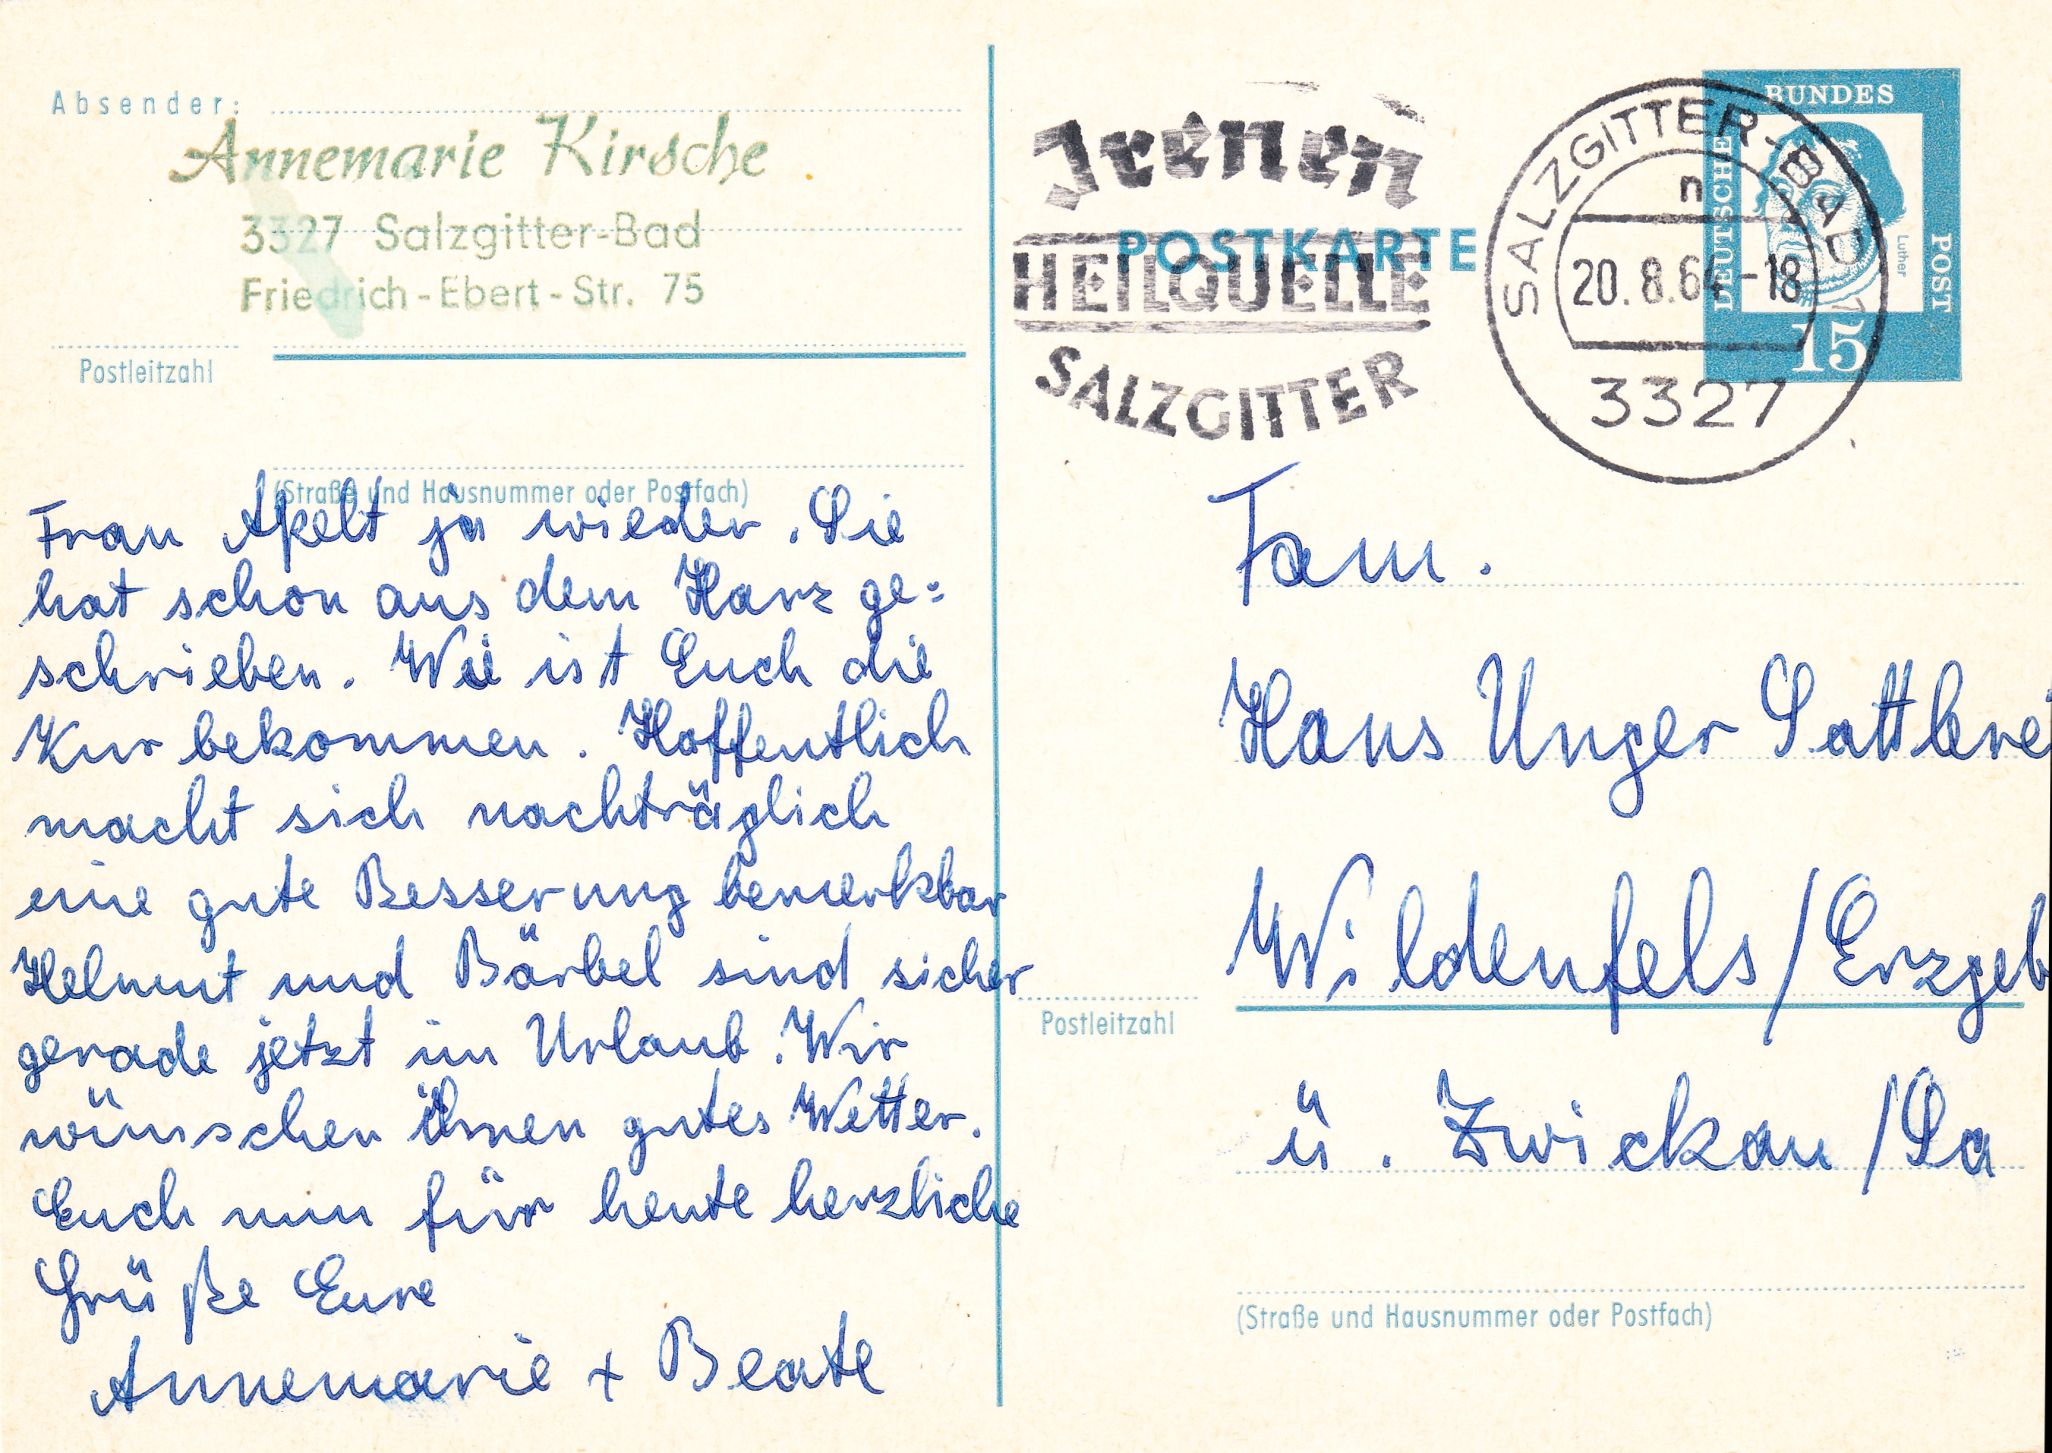 Absender:
Annemarie Kirsche
3327 Salzgitter-Bad
Friedrich-Ebert-Str. 75
Postleitzahl
(Straße und Hausnummer oder Postfach)
Frau Apelt ja wieder. Sie
hat schon aus dem Harz ge=
schrieben. Wie ist Euch die
Kur bekommen. Hoffentlich
macht sich nachträglich
eine gute Besserung bemerkbar
Helmut und Bärbel sind sicher
gerade jetzt im Urlaub. Wir
wünschen ihnen gutes Wetter.
Euch nun für heute herzliche
Grüße Eure
Annemarie + Beate
Irenen
HEILQUELLE
SALZGITTER
POSTKARTE
SALZGITTER-BAD 1
n
20.8.64-18
3327
BUNDES
DEUTSCHE
POST
Luther
15
Fam.
Hans Unger Sattlerei
Wildenfels/Erzgeb
Postleitzahl
ü. Zwickau/Sa
(Straße und Hausnummer oder Postfach)